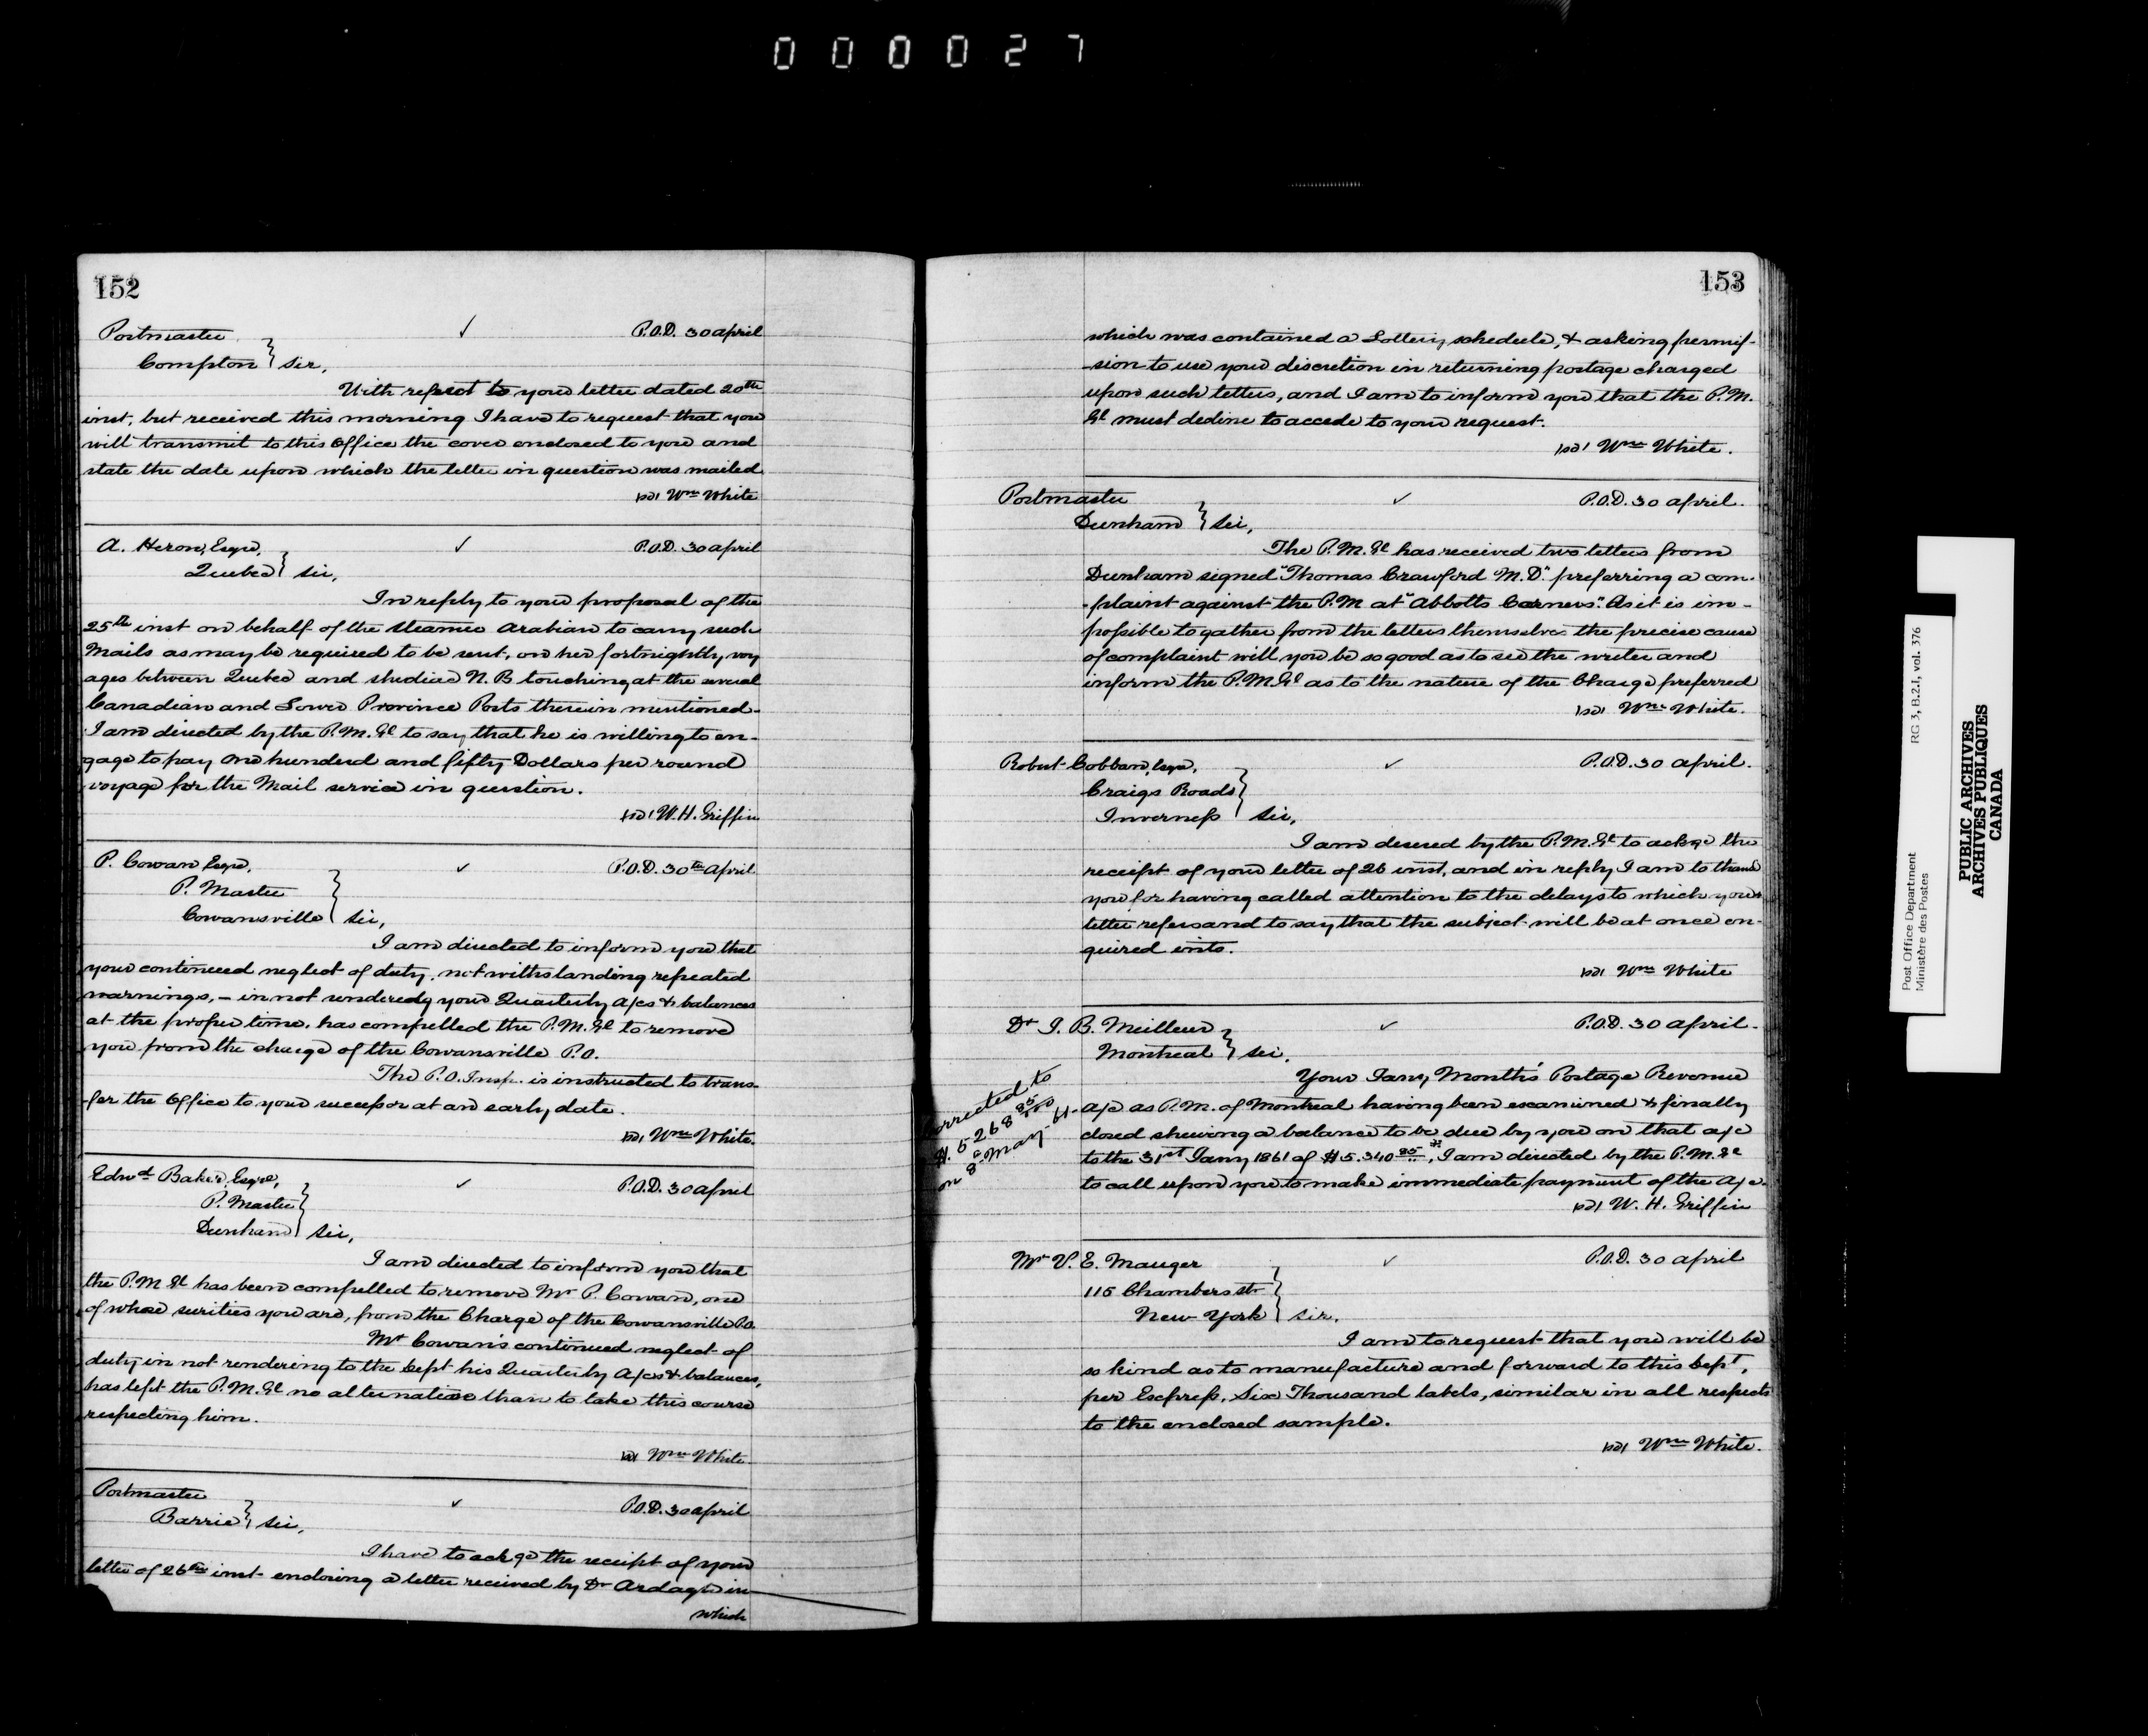 000027
152
Postmaster ✓ P.O.D. 30 April
Compton } Sir,
With respect to your letter dated 20th
inst, but received this morning I have to request that you
will transmit to this Office the cover enclosed to you and
state the date upon which the letter in question was mailed
Wm White
A. Heron, Esqre, ✓ P.O.D. 30 April
Quebec } Sir,
In reply to your proposal of the
25th inst on behalf of the Steamer Arabian to carry such
Mails as may be required to be sent, on her fortnightly voy
ages between Quebec and Shediac N.B touching at the several
Canadian and Lower Province Ports therein mentioned.
I am directed by the P.M.Gl to say that he is willing to en-
gage to pay One hundred and fifty Dollars per round
voyage for the Mail service in question.
W.H. Griffin
P. Cowan Esqre, ✓ P.O.D. 30th April
P. Master
Cowansville } Sir,
I am directed to inform you that
your continued neglect of duty, notwithstanding repeated
warnings, – in not rendering your Quarterly a/cs & balances
at the proper time, has compelled the P.M.Gl to remove
you from the charge of the Cowansville P.O.
The P.O. Insp. is instructed to trans-
-fer the Office to your successor at an early date.
Wm White
Edwd Baker, Esqre, ✓ P.O.D. 30 April
P. Master
Dunham } Sir,
I am directed to inform you that
the P.M Gl has been compelled to remove Mr P. Cowan, one
of whose surities you are, from the Charge of the Cowansville P.O.
Mr Cowan's continued neglect of
duty in not rendering to the Dept his Quarterly A/cs & balances,
has left the P.M.Gl no alternative than to take this course
respecting him.
Wm White
Postmaster ✓ P.O.D. 30 April
Barrie } Sir,
I have to ackge the receipt of your
letter of 26th inst enclosing a letter received by Dr Ardagh in
which
153
which was contained a Lottery schedule, & asking permis-
-sion to use your discretion in returning postage charged
upon such letters, and I am to inform you that the P.M.
Gl must decline to accede to your request.
Wm White.
Postmaster ✓ P.O.D. 30 April.
Dunham } Sir,
The P.M.Gl has received two letters from
Dunham signed "Thomas Crawford M.D." preferring a com-
-plaint against the P.M at "Abbotts Corners." As it is im-
possible to gather from the letters themselves the precise cause
of complaint will you be so good as to see the writer and
inform the P.M.Gl as to the nature of the Charge preferred
Wm White.
Robert Cobban, Esqre, ✓ P.O.D. 30 April.
Craigs Roads
Inverness } Sir,
I am desired by the P.M.Gl to ackge the
receipt of your letter of 26 inst, and in reply I am to thank
you for having called attention to the delays to which your
letter refers and to say that the subject will be at once en-
quired into.
Wm White
Dr J. B. Meilleur ✓ P.O.D. 30 April.
Montreal } Sir,
Your Jany Month's Postage Revenue
a/c as P.M. of Montreal having been examined & finally
closed shewing a balance to be due by you on that a/c
to the 31st Jany 1861 of $5.340 85 *, I am directed by the P.M.Gl
to call upon you to make immediate payment of the a/c.
W. H. Griffin
Corrected to
$5268 85
on 8 May 61
Mr V. E. Mauger ✓ P.O.D. 30 April
115 Chambers str
New York } Sir,
I am to request that you will be
so kind as to manufacture and forward to this Dept,
per Express, Six Thousand labels, similar in all respects
to the enclosed sample.
Wm White.
Post Office Department RG 3, B.2.I, vol. 376
Ministère des Postes
PUBLIC ARCHIVES
ARCHIVES PUBLIQUES
CANADA